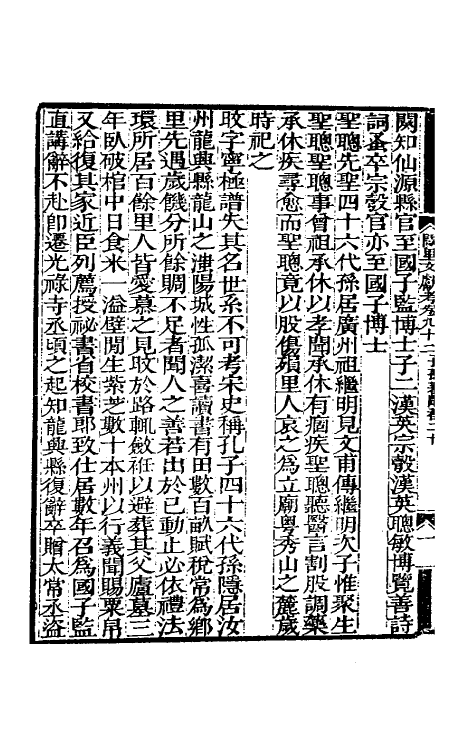 闕知仙源縣官至國子監博士子二漢英宗彀漢英聰敏博覽善詩
詞蚤卒宗彀官亦至國子博士
聖聰先聖四十六代孫居廣州祖繼明見文甫傳繼明次子惟聚生
聖聰聖聰事曾祖承休以孝聞承休有痼疾聖聰聽醫言割股調藥
承休疾尋愈而聖聰竟以股傷殞里人哀之為立廟粵秀山之麓歲
時祀之
旼字寧極譜失其名世系不可考宋史稱孔子四十六代孫隱居汝
州龍興縣龍山之滍陽城性孤潔喜讀書有田數百畝賦稅常為鄉
里先遇歲饑分所餘賙不足者聞人之善若出於己動止必依禮法
環所居百餘里人皆愛慕之見旼於路輒斂袵以避葬其父廬墓三
年臥破棺中日食米一溢壁間生紫芝數十本州以行義聞賜粟帛
又給復其家近臣列薦授祕書省校書郎致仕居數年召為國子監
直講辭不赴卽遷光祿寺丞頃之起知龍興縣復辭卒贈太常丞盜